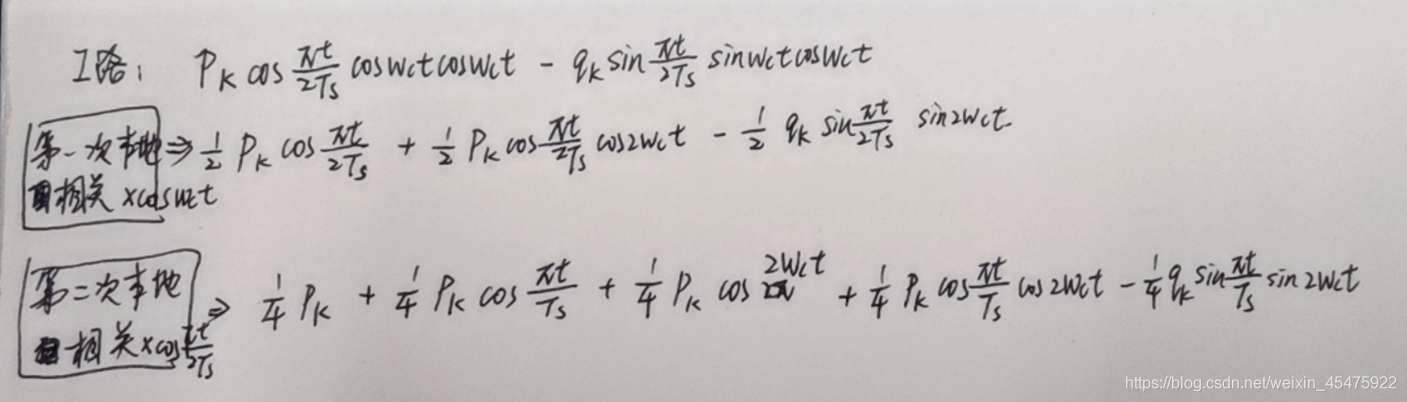 I路: P_K cos πt/2Ts cosωct cosωct - q_K sin πt/2Ts sinωct cosωct
第一次本地 ⇒ 1/2 P_K cos πt/2Ts + 1/2 P_K cos πt/2Ts cos2ωct - 1/2 q_K sin πt/2Ts sin2ωct
相关 ×cosωct
第二次本地 ⇒ 1/4 P_K + 1/4 P_K cos πt/Ts + 1/4 P_K cos 2ωct + 1/4 P_K cos πt/Ts cos2ωct - 1/4 q_K sin πt/Ts sin2ωct
相关 ×cos πt/2Ts
https://blog.csdn.net/weixin_45475922